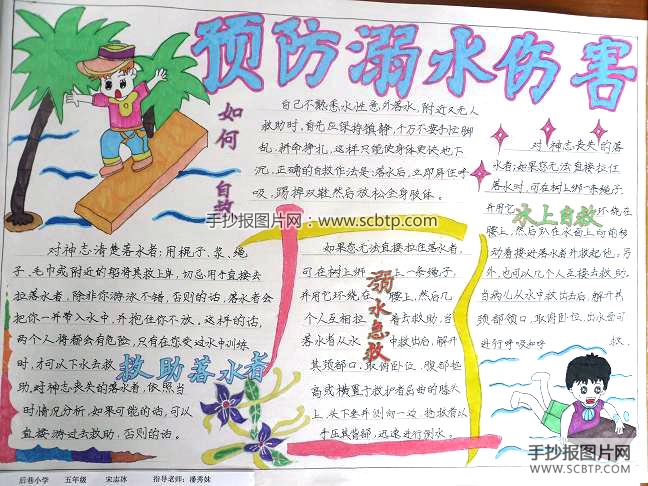 预防溺水伤害
如何自救
自己不熟悉水性意外落水,附近又无人
救助时,首先应保持镇静,千万不要手忙脚
乱、拼命挣扎,这样只能使身体更快地下
沉。正确的自救作法是:落水后立即屏住呼
吸,踢掉双鞋,然后放松全身肢体。
手抄报图片网:www.scbtp.com
对神志清楚落水者:用棍子、浆、绳
子、毛巾或附近的船将其救上岸,切忌用手直接去
拉落水者,除非你游泳不错,否则的话,落水者会
把你一并带入水中,并抱住你不放,这样的话,
两个人将都会有危险,只有在您受过水中训练
时,才可以下水去救
助。对神志丧失的落水者,依照当
时情况分析,如果可能的话,可以
直接游过去救助,否则的话。
救助落水者
如果您无法直接拉住落水者,
可在树上绑上一条绳子,
并用它环绕在腰上,然后几
个人互相拉着去救助,当
落水者从水中救出后,解开
其颈部口,取俯卧位,腹部抬
高或横置于救护者屈曲的膝头
上,头下垂并侧向一边,抢救者以
手压其背部,迅速进行倒水。
溺水急救
对神志丧失的落
水者:如果您无法直接拉住
落水时,可在树上绑一条绳子,
并用它环绕在
腰上,然后趴在水面上向前移
动着接近落水者并救起他,另
外,也可以几个人互接去救助,
当病儿从水中救出去后,解开其
颈部领口,取俯卧位,出水要可
进行呼吸和呼救。
水上自救
手抄报图片网
WWW.SCBTP.COM
后巷小学 五年级 宋志冰 指导老师:潘秀妹